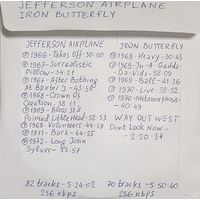 JEFFERSON AIRPLANE
IRON BUTTERFLY
JEFFERSON AIRPLANE
1966-Takes Off-30:50
1967-Surrealistic
Pillow-34:21
1967-After Bathing
At Baxter's-43:58
1968-Crown Of
Creation-38:11
1969-Bless It's
Pointed Little Head-52:53
1969-Volunteers-44:59
1971-Bark-44:55
1972-Long John
Sylver-33:57
82 tracks-5:24:02
256 Kbps
IRON BUTTERFLY
1968-Heavy-30:45
1968-In-A-Gadda-
Da-Vida-58:09
1969-Ball-41:36
1970-Live-38:52
1970-Metamorphos-
-40:49
WAY OUT WEST
Dont Look Now-
-2:20:39
70 tracks-5:50:40
256 Kbps